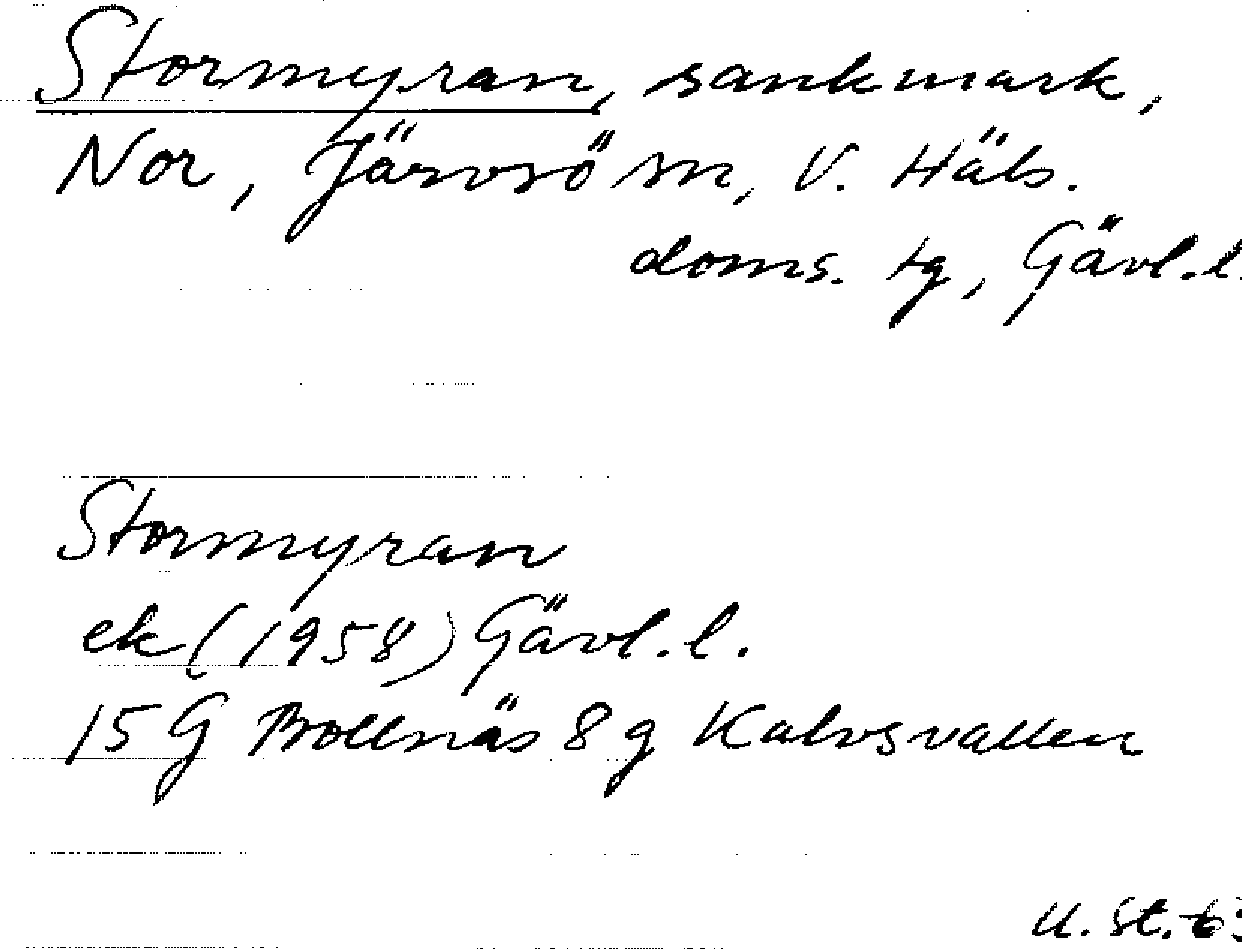 Stormyran, sankmark,
Nor, Järvsö sn, V. Häls.
doms. tg, Gävl.l.
Stormyran
ek (1958) Gävl.l.
15G Bollnäs 8g Kalvsvallen
U. St. 63